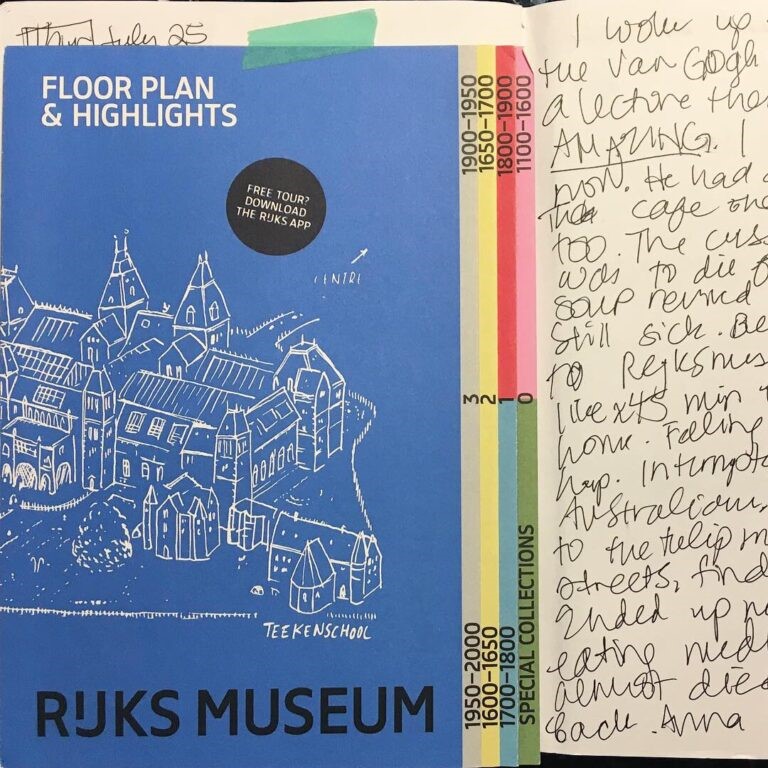 July 25
FLOOR PLAN
& HIGHLIGHTS
FREE TOUR?
DOWNLOAD
THE RIJKS APP
CENTRE
TEEKENSCHOOL
RIJKS MUSEUM
1900–1950
1650–1700
1800–1900
1100–1600
3
2
1
0
1950–2000
1600–1650
1700–1800
SPECIAL COLLECTIONS
I woke up
the Van Gogh
a lecture the
AMAZING. I
now. He had
cafe
too. The
was to die
soup revived
still sick. Be
to Rejksmus
like x45 min
home. Falling
nap. Interrupt
Australian
to the tulip m
streets, find
ended up
eating
almost died
back. Anna